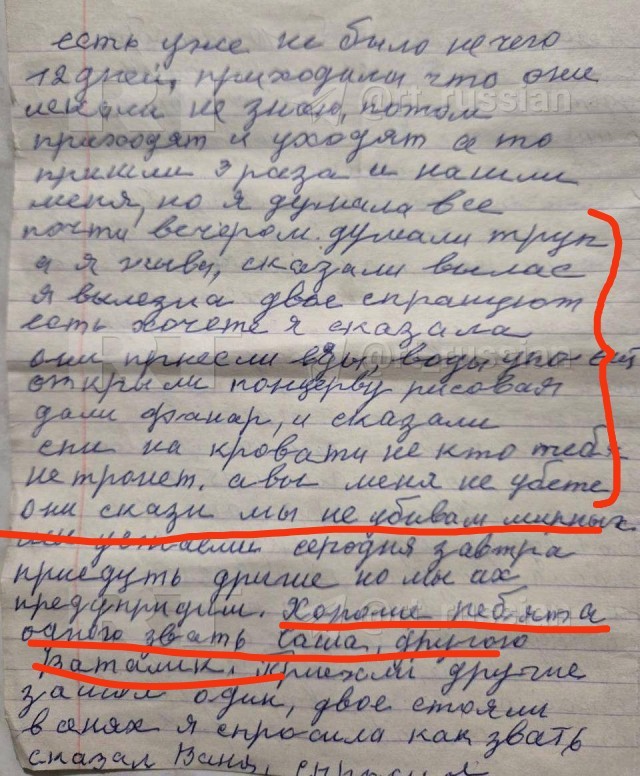 есть уже не было нечего
12 дней, приходили что они
искали не знаю, потом
приходят и уходят а то
пришли 3 раза и нашли
меня, но я думала все
почти вечером. думали труп
а я жива, сказали вылас
я вылезла двое спрашуют
есть хочете я сказала
они принесли еды, воды
открыли концерву рисовая
дали фанар, и сказали
спи на кровати не кто тебя
не тронет. а вы меня не убете
они скази мы не убивам мирных
сегодня завтра
приедуть другие но мы их
предупридим. Хороши ребята
одного звать Саша, другого
Ватамик. приехали другие
зашол один, двое стояли
в сенях я спросила как звать
сказал Ваня,
RT
@rt_russian
RT
@rt_russian